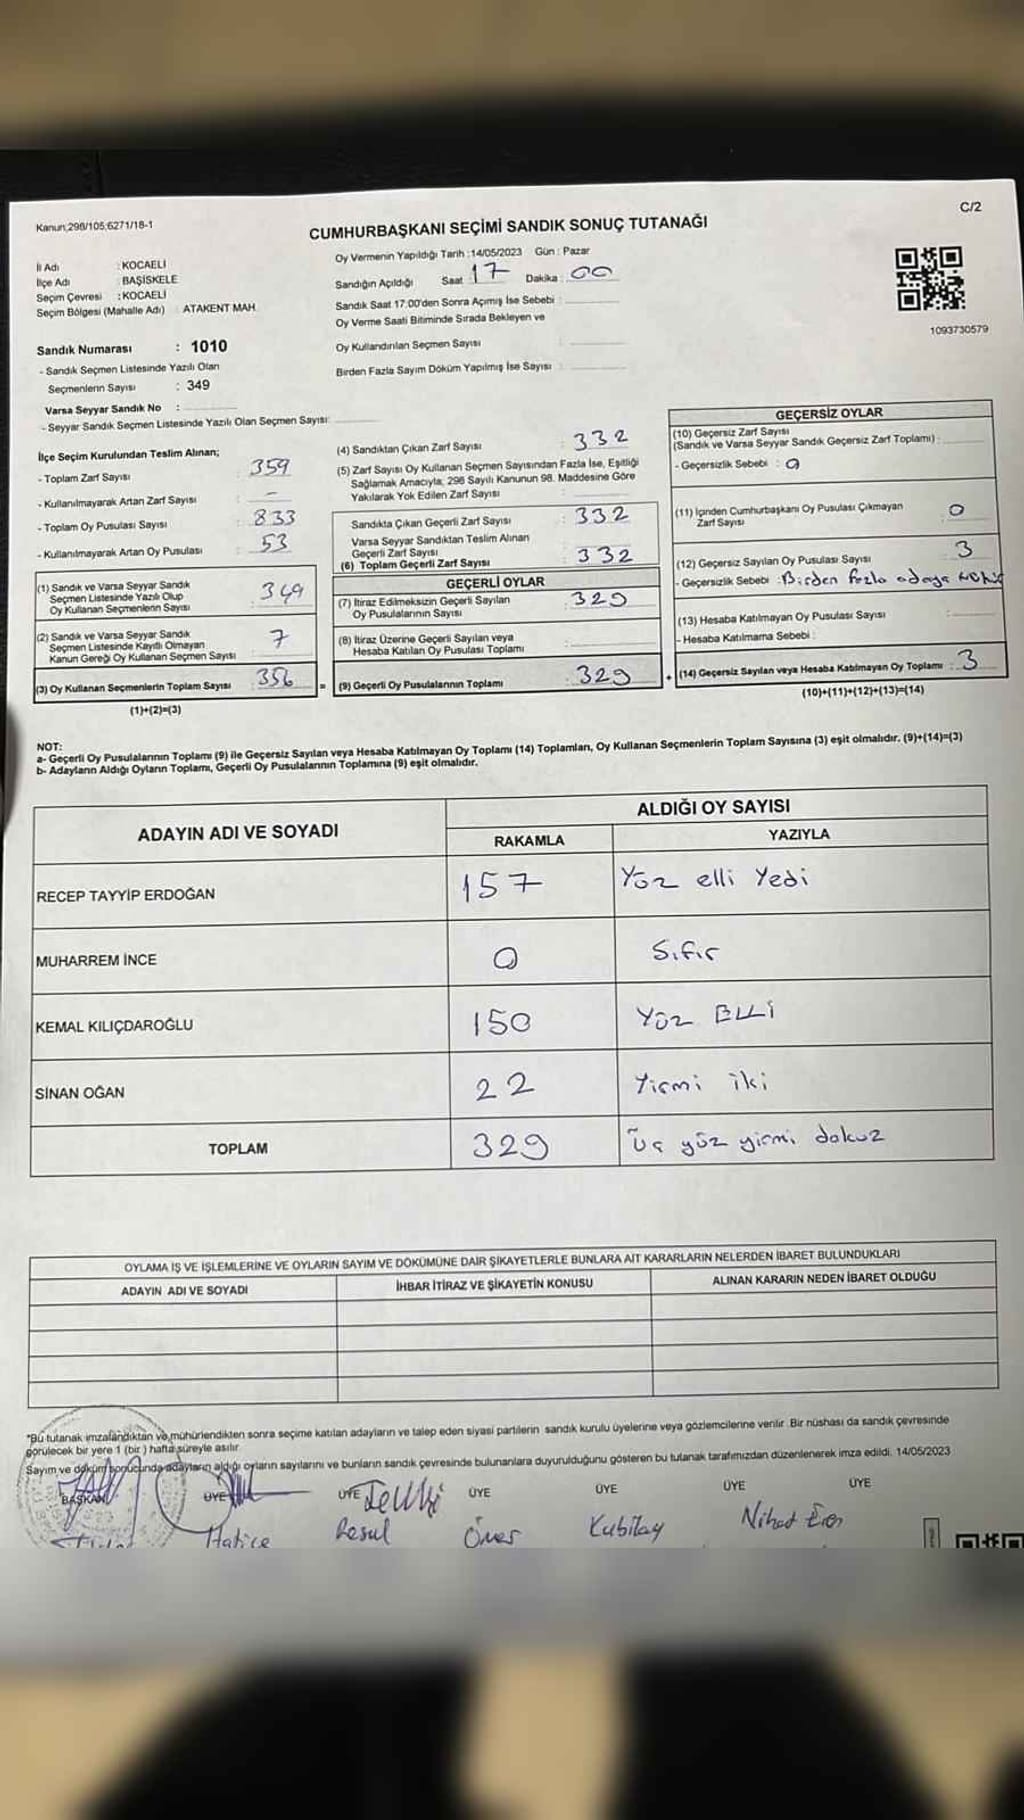 Kanun;298/105;6271/18-1
C/2
CUMHURBAŞKANI SEÇİMİ SANDIK SONUÇ TUTANAĞI
İl Adı : KOCAELİ
İlçe Adı : BAŞİSKELE
Seçim Çevresi : KOCAELİ
Seçim Bölgesi (Mahalle Adı) : ATAKENT MAH.
Sandık Numarası : 1010
- Sandık Seçmen Listesinde Yazılı Olan
Seçmenlerin Sayısı : 349
Varsa Seyyar Sandık No :
- Seyyar Sandık Seçmen Listesinde Yazılı Olan Seçmen Sayısı:
Oy Vermenin Yapıldığı Tarih :14/05/2023 Gün : Pazar
Sandığın Açıldığı Saat 17 Dakika : 00
Sandık Saat 17:00'den Sonra Açımış İse Sebebi :
Oy Verme Saati Bitiminde Sırada Bekleyen ve
Oy Kullandırılan Seçmen Sayısı :
Birden Fazla Sayım Döküm Yapılmış İse Sayısı :
1093730579
İlçe Seçim Kurulundan Teslim Alınan;
- Toplam Zarf Sayısı : 359
- Kullanılmayarak Artan Zarf Sayısı : -
- Toplam Oy Pusulası Sayısı : 833
- Kullanılmayarak Artan Oy Pusulası : 53
(1) Sandık ve Varsa Seyyar Sandık
Seçmen Listesinde Yazılı Olup
Oy Kullanan Seçmenlerin Sayısı : 349
(2) Sandık ve Varsa Seyyar Sandık
Seçmen Listesinde Kayıtlı Olmayan
Kanun Gereği Oy Kullanan Seçmen Sayısı : 7
(3) Oy Kullanan Seçmenlerin Toplam Sayısı : 356
(1)+(2)=(3)
=
(4) Sandıktan Çıkan Zarf Sayısı : 332
(5) Zarf Sayısı Oy Kullanan Seçmen Sayısından Fazla İse, Eşitliği
Sağlamak Amacıyla; 298 Sayılı Kanunun 98. Maddesine Göre
Yakılarak Yok Edilen Zarf Sayısı :
Sandıkta Çıkan Geçerli Zarf Sayısı : 332
Varsa Seyyar Sandıktan Teslim Alınan
Geçerli Zarf Sayısı :
(6) Toplam Geçerli Zarf Sayısı : 332
GEÇERLİ OYLAR
(7) İtiraz Edilmeksizin Geçerli Sayılan
Oy Pusulalarının Sayısı : 329
(8) İtiraz Üzerine Geçerli Sayılan veya
Hesaba Katılan Oy Pusulası Toplamı :
(9) Geçerli Oy Pusulalarının Toplamı : 329
+
GEÇERSİZ OYLAR
(10) Geçersiz Zarf Sayısı
(Sandık ve Varsa Seyyar Sandık Geçersiz Zarf Toplamı) :
- Geçersizlik Sebebi : 0
(11) İçinden Cumhurbaşkanı Oy Pusulası Çıkmayan
Zarf Sayısı : 0
(12) Geçersiz Sayılan Oy Pusulası Sayısı : 3
- Geçersizlik Sebebi : Birden fazla adaya
(13) Hesaba Katılmayan Oy Pusulası Sayısı :
- Hesaba Katılmama Sebebi :
(14) Geçersiz Sayılan veya Hesaba Katılmayan Oy Toplamı : 3
(10)+(11)+(12)+(13)=(14)
NOT:
a- Geçerli Oy Pusulalarının Toplamı (9) ile Geçersiz Sayılan veya Hesaba Katılmayan Oy Toplamı (14) Toplamları, Oy Kullanan Seçmenlerin Toplam Sayısına (3) eşit olmalıdır. (9)+(14)=(3)
b- Adayların Aldığı Oyların Toplamı, Geçerli Oy Pusulalarının Toplamına (9) eşit olmalıdır.
ADAYIN ADI VE SOYADI
ALDIĞI OY SAYISI
RAKAMLA YAZIYLA
RECEP TAYYİP ERDOĞAN 157 Yüz elli Yedi
MUHARREM İNCE 0 Sıfır
KEMAL KILIÇDAROĞLU 150 Yüz ELLİ
SİNAN OĞAN 22 Yirmi iki
TOPLAM 329 Üç yüz yirmi dokuz
OYLAMA İŞ VE İŞLEMLERİNE VE OYLARIN SAYIM VE DÖKÜMÜNE DAİR ŞİKAYETLERLE BUNLARA AİT KARARLARIN NELERDEN İBARET BULUNDUKLARI
ADAYIN ADI VE SOYADI İHBAR İTİRAZ VE ŞİKAYETİN KONUSU ALINAN KARARIN NEDEN İBARET OLDUĞU
*Bu tutanak imzalandıktan ve mühürlendikten sonra seçime katılan adayların ve talep eden siyasi partilerin sandık kurulu üyelerine veya gözlemcilerine verilir. Bir nüshası da sandık çevresinde
görülecek bir yere 1 (bir) hafta süreyle asılır.
Sayım ve döküm sonucunda adayların aldığı oyların sayılarını ve bunların sandık çevresinde bulunanlara duyurulduğunu gösteren bu tutanak tarafımızdan düzenlenerek imza edildi. 14/05/2023
BAŞKAN ÜYE ÜYE ÜYE ÜYE ÜYE ÜYE
Hatice Resul Ömer Kubilay Nihat